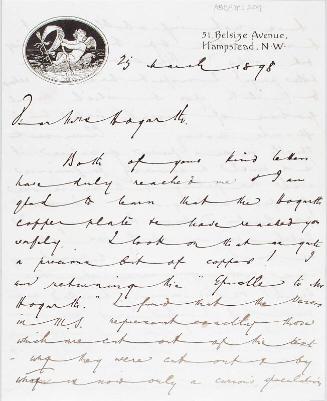 51. Belsize Avenue,
Hampstead. N.W.
25 March 1898
Dear Mrs Hogarth,
Both of your kind letters
have duly reached me & I am
glad to learn that the Hogarth
copper plate &c have reached you
safely. I look on that as quite
a precious bit of copper! I
am returning the "Epistle to Mr
Hogarth." I find that the
in M.S. represent exactly those
which are cut out of the text
- why they were cut out & by
is now only a curious speculation